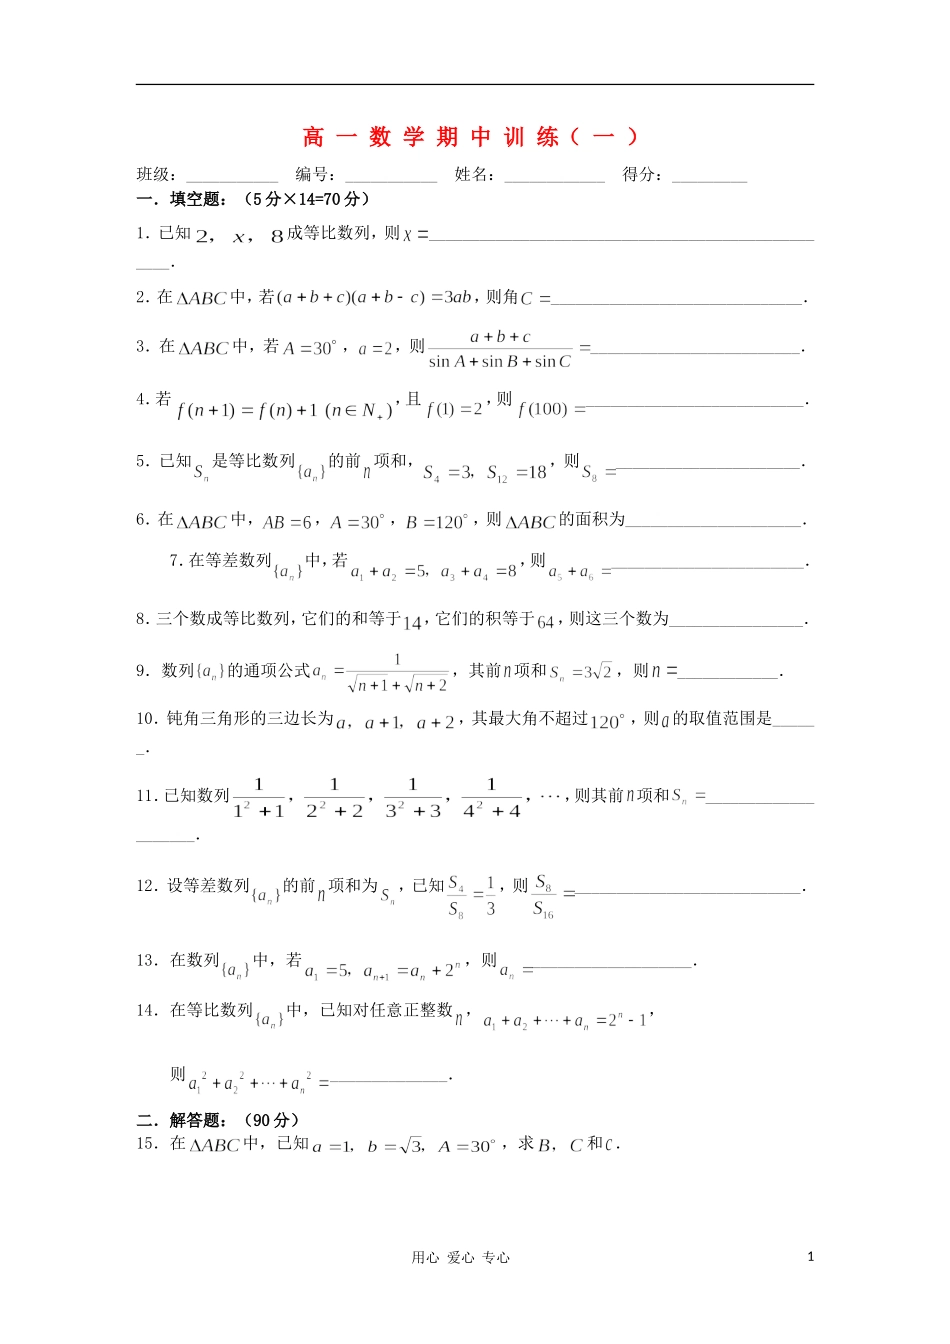 高 一 数 学 期 中 训 练（ 一 ）
班级：___________ 编号：___________ 姓名：____________ 得分：_________
一．填空题：（5 分×14=70 分）
1．已知 2， x， 8 成等比数列，则 x =______________________________________________
____．
2．在 ΔABC 中，若 (a + b + c)(a + b - c) = 3ab，则角 C =______________________________．
3．在 ΔABC 中，若 A = 30°，a = 2，则 (a + b + c)/(sin A + sin B + sin C) =_________________________．
4．若 f(n+1) = f(n) + 1 (n ∈ N₊)，且 f(1) = 2，则 f(100) =__________________________．
5．已知 Sₙ 是等比数列 {aₙ} 的前 n 项和，S₄ = 3，S₁₂ = 18，则 S₈ =______________________．
6．在 ΔABC 中，AB = 6，A = 30°，B = 120°，则 ΔABC 的面积为_____________________．
7．在等差数列 {aₙ} 中，若 a₁ + a₂ = 5，a₃ + a₄ = 8，则 a₅ + a₆ =_______________________．
8．三个数成等比数列，它们的和等于 14，它们的积等于 64，则这三个数为________________．
9．数列 {aₙ} 的通项公式 aₙ = 1/(√(n+1) + √(n+2))，其前 n 项和 Sₙ = 3√2，则 n =____________．
10．钝角三角形的三边长为 a，a + 1，a + 2，其最大角不超过 120°，则 a 的取值范围是_____
_．
11．已知数列 1/(1² + 1)，1/(2² + 2)，1/(3² + 3)，1/(4² + 4)，⋯，则其前 n 项和 Sₙ =_____________
_______．
12．设等差数列 {aₙ} 的前 n 项和为 Sₙ，已知 S₄/S₈ = 1/3，则 S₈/S₁₆ =___________________________．
13．在数列 {aₙ} 中，若 a₁ = 5，aₙ₊₁ = aₙ + 2ⁿ，则 aₙ =___________________．
14．在等比数列 {aₙ} 中，已知对任意正整数 n，a₁ + a₂ + ⋯ + aₙ = 2ⁿ - 1，
则 a₁² + a₂² + ⋯ + aₙ² =______________．
二．解答题：（90 分）
15．在 ΔABC 中，已知 a = 1，b = √3，A = 30°，求 B，C 和 c．
用心 爱心 专心 1